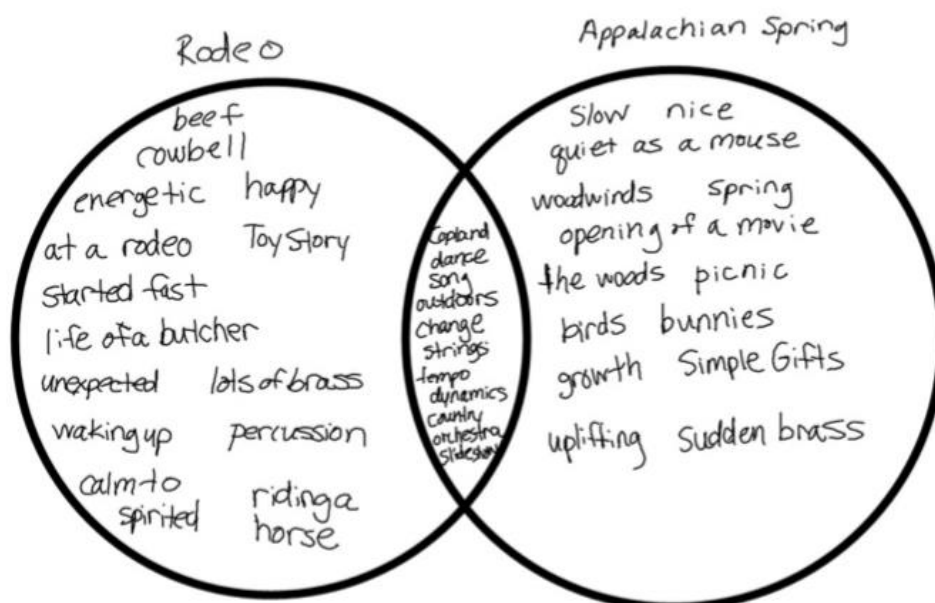 Rodeo
Appalachian Spring
beef
cowbell
energetic happy
at a rodeo Toy Story
started fast
life of a butcher
unexpected lots of brass
waking up percussion
calm to
spirited
riding a
horse
Copland
dance
song
outdoors
change
strings
tempo
dynamics
country
orchestra
slideshow
slow nice
quiet as a mouse
woodwinds spring
opening of a movie
the woods picnic
birds bunnies
growth Simple Gifts
uplifting Sudden brass